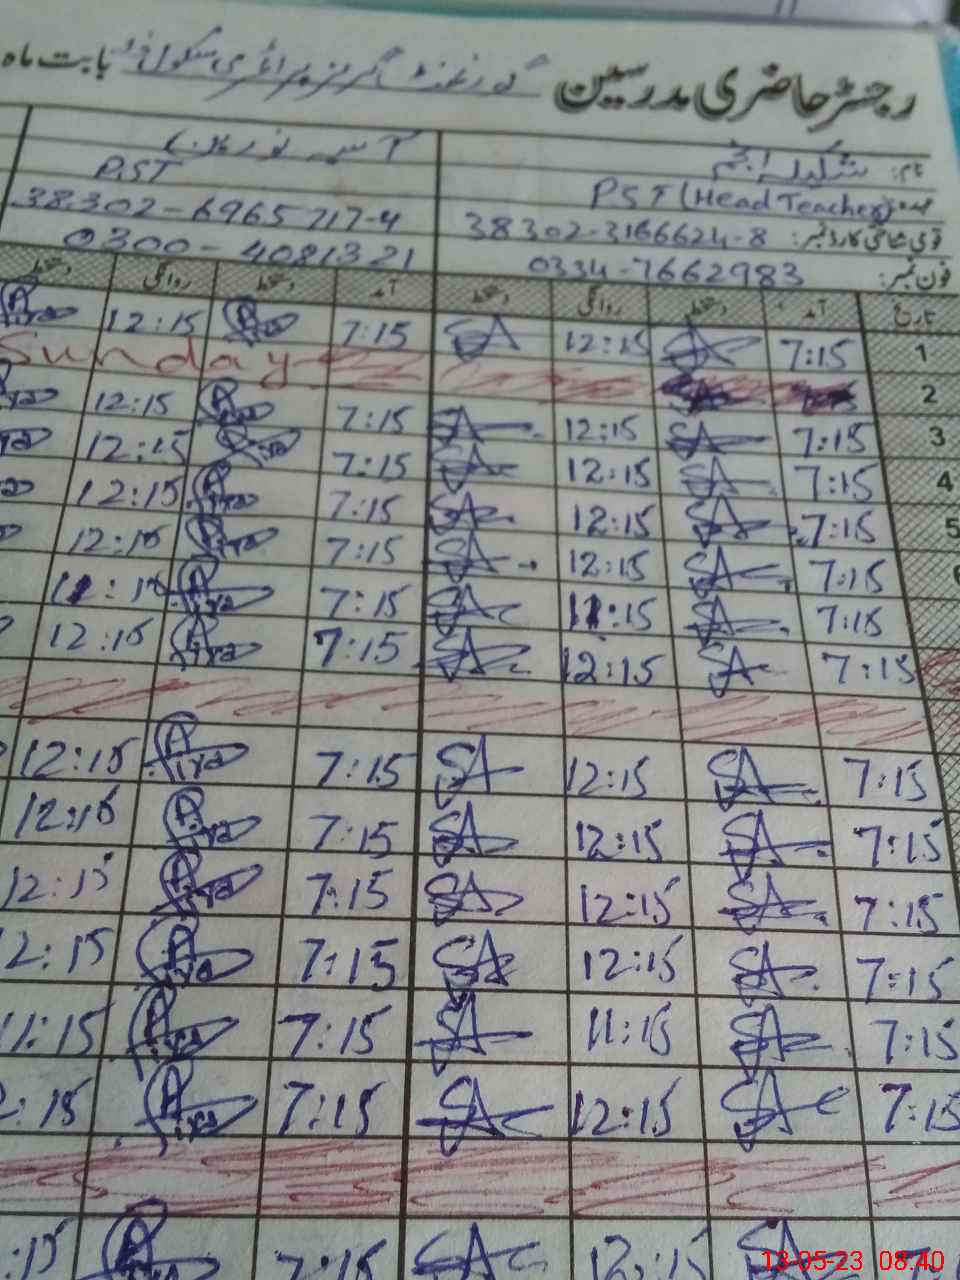 رجسٹر حاضری مدرسین گورنمنٹ گرلز پرائمری سکول بابت ماہ
نام: شکیلہ انجم آسیہ
عہدہ: PST (Head Teacher) PST
قومی شناختی کارڈ نمبر: 38302-3166624-8 38302-6965717-4
فون نمبر: 0334-7662983 0300-4081321
تاریخ آمد دستخط روانگی دستخط آمد دستخط روانگی دستخط
1 7:15 SA 12:15 SA 7:15 12:15
2 Sunday
3 7:15 SA 12:15 SA 7:15 12:15
4 7:15 SA 12:15 SA 7:15 12:15
5 7:15 SA 12:15 SA 7:15 12:15
6 7:15 SA 12:15 SA 7:15 12:15
7:15 SA 11:15 SA 7:15 11:15
7:15 SA 12:15 SA 7:15 12:15
7:15 SA 12:15 SA 7:15 12:15
7:15 SA 12:15 SA 7:15 12:15
7:15 SA 12:15 SA 7:15 12:15
7:15 SA 12:15 SA 7:15 12:15
7:15 SA 11:15 SA 7:15 11:15
7:15 SA 12:15 SA 7:15 2:15
SA 12:15 SA 7:15 :15
13-05-23 08:40